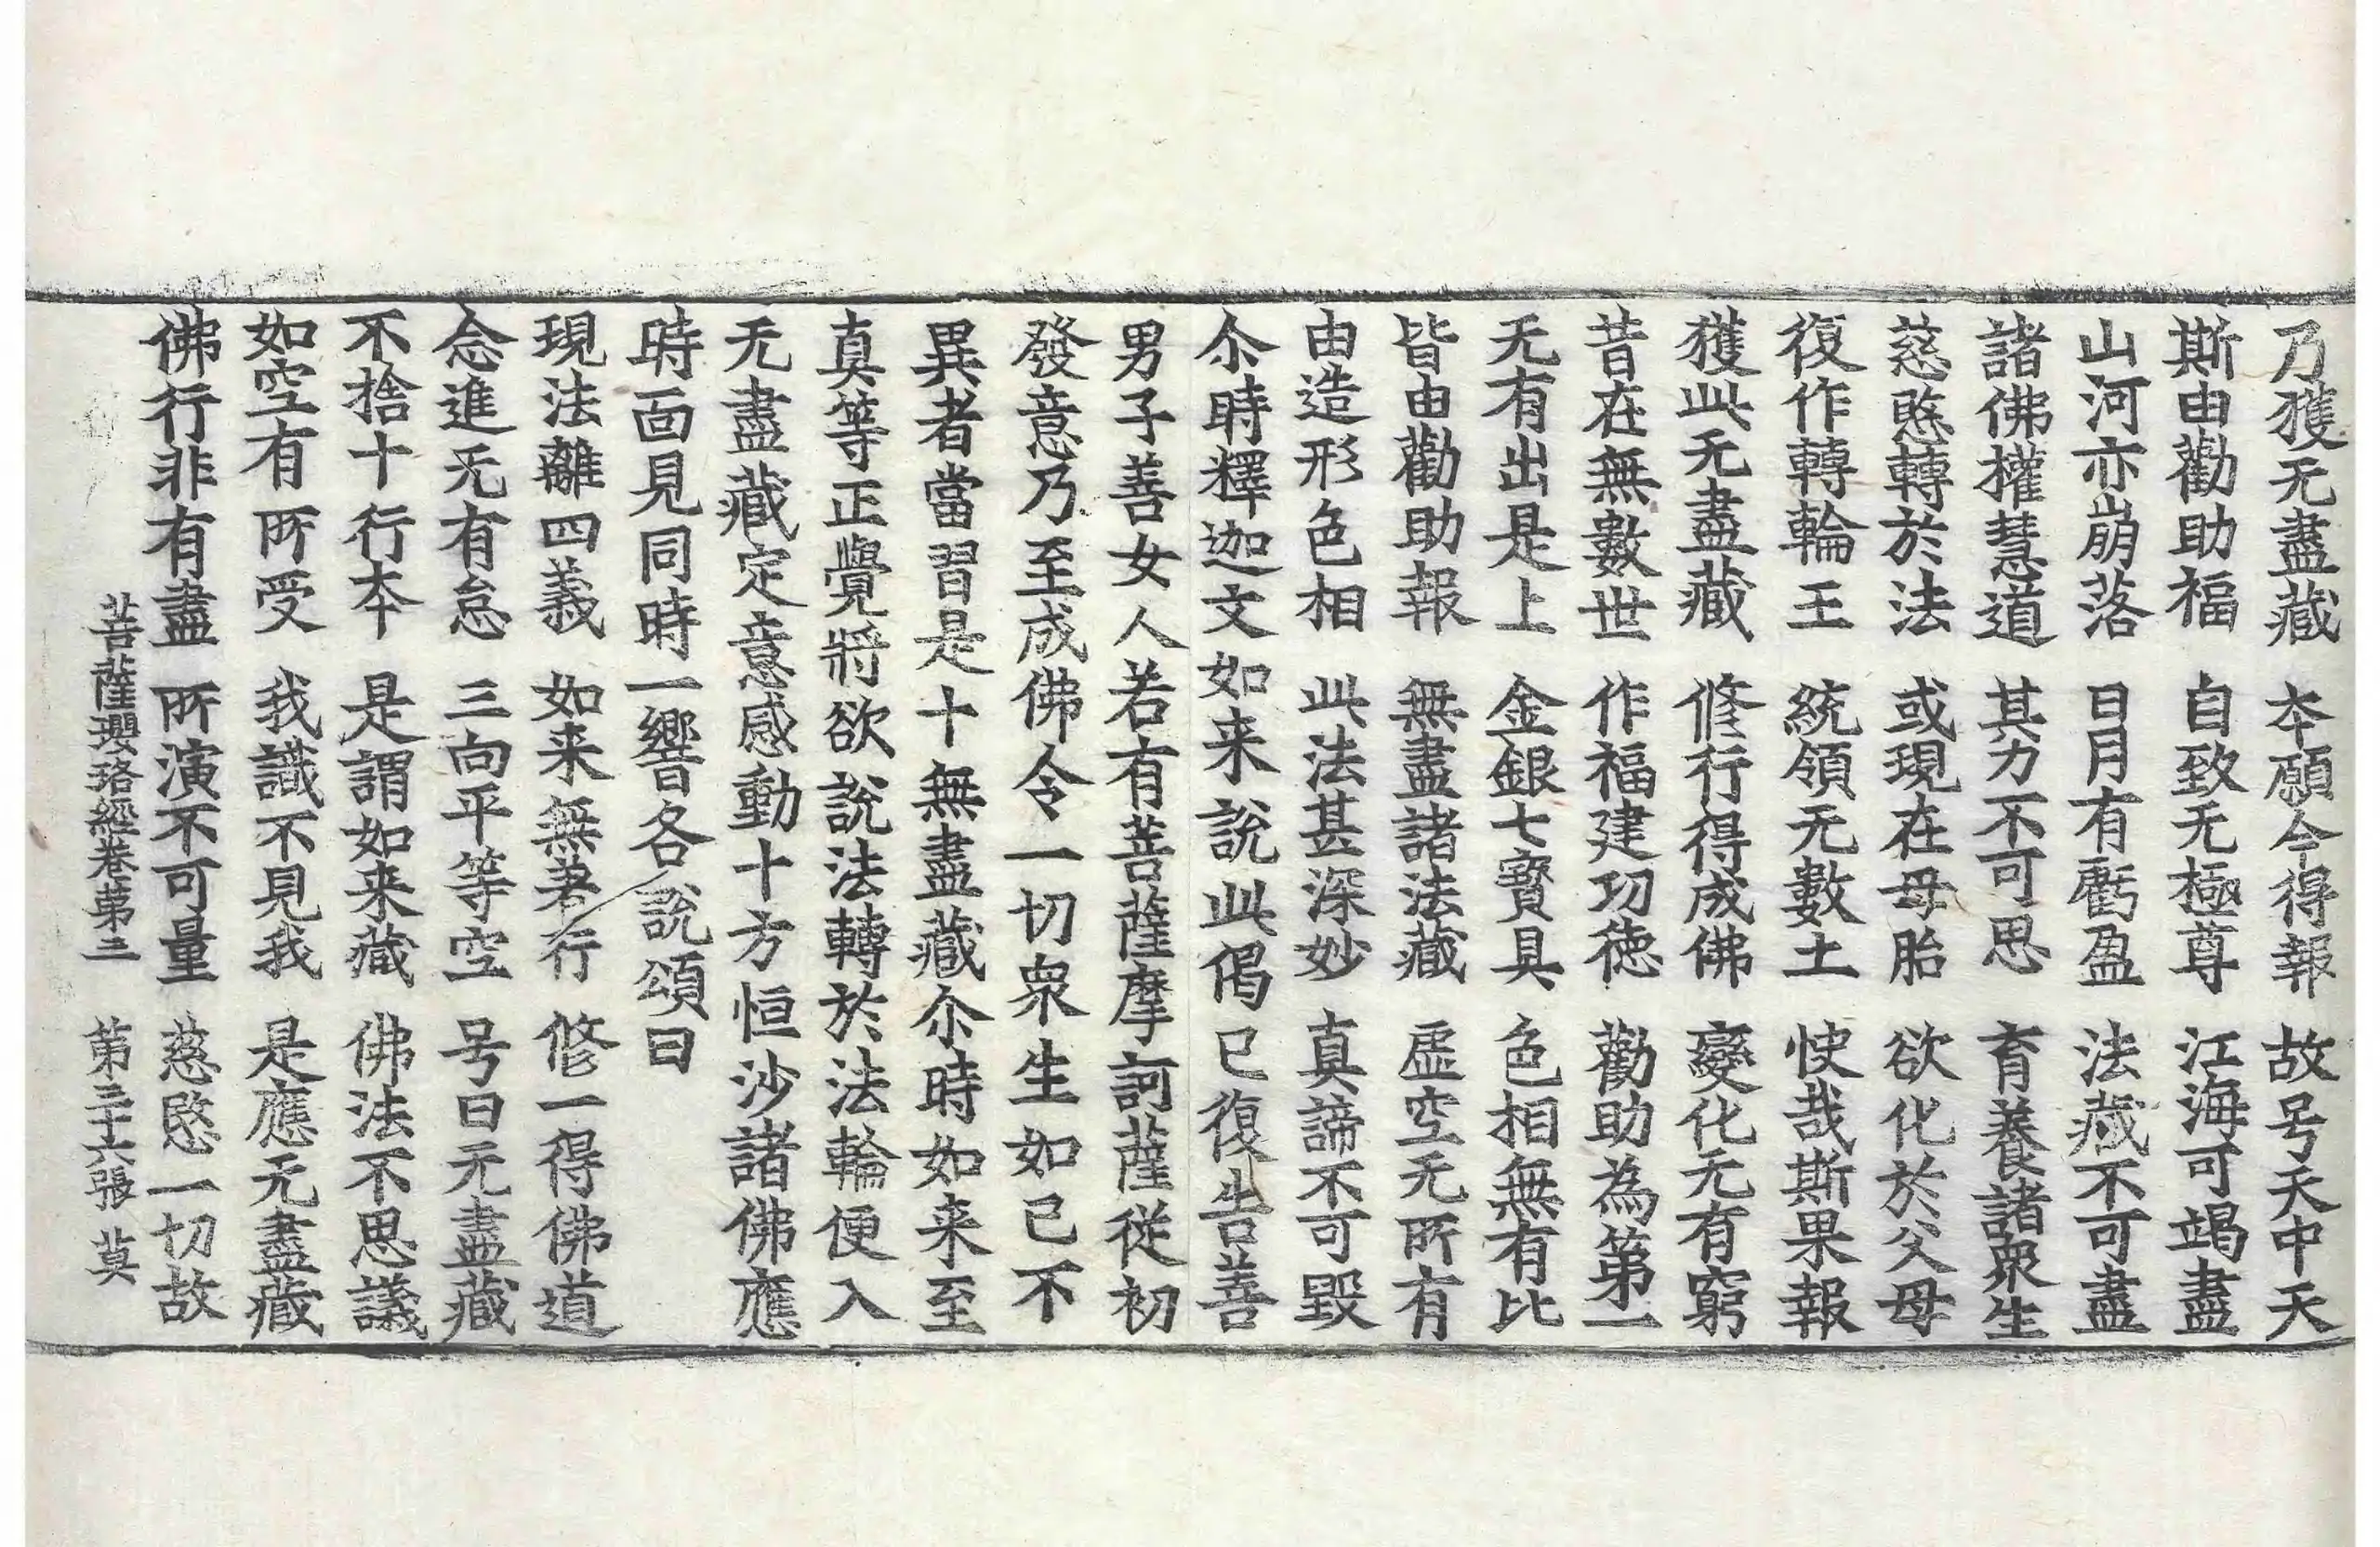 乃獲无盡藏 本願今得報 故号天中天
斯由勸助福 自致无極尊 江海可竭盡
山河亦崩落 日月有虧盈 法藏不可盡
諸佛權慧道 其力不可思 育養諸衆生
慈愍轉於法 或現在母胎 欲化於父母
復作轉輪王 統領无數土 快哉斯果報
獲此无盡藏 修行得成佛 變化无有窮
昔在無數世 作福建功德 勸助為第一
无有出是上 金銀七寶具 色相無有比
皆由勸助報 無盡諸法藏 虛空无所有
由造形色相 此法甚深妙 真諦不可毀
尒時釋迦文如来說此偈已復告善
男子善女人若有菩薩摩訶薩從初
發意乃至成佛令一切衆生如己不
異者當習是十無盡藏尒時如来至
真等正覺將欲說法轉於法輪便入
无盡藏定意感動十方恒沙諸佛應
時面見同時一響各說頌曰
現法離四義 如来無著行 修一得佛道
念進无有怠 三向平等空 号曰无盡藏
不捨十行本 是謂如来藏 佛法不思議
如空有所受 我識不見我 是應无盡藏
佛行非有盡 所演不可量 慈愍一切故
菩薩瓔珞經卷第三 第三十六張 莫